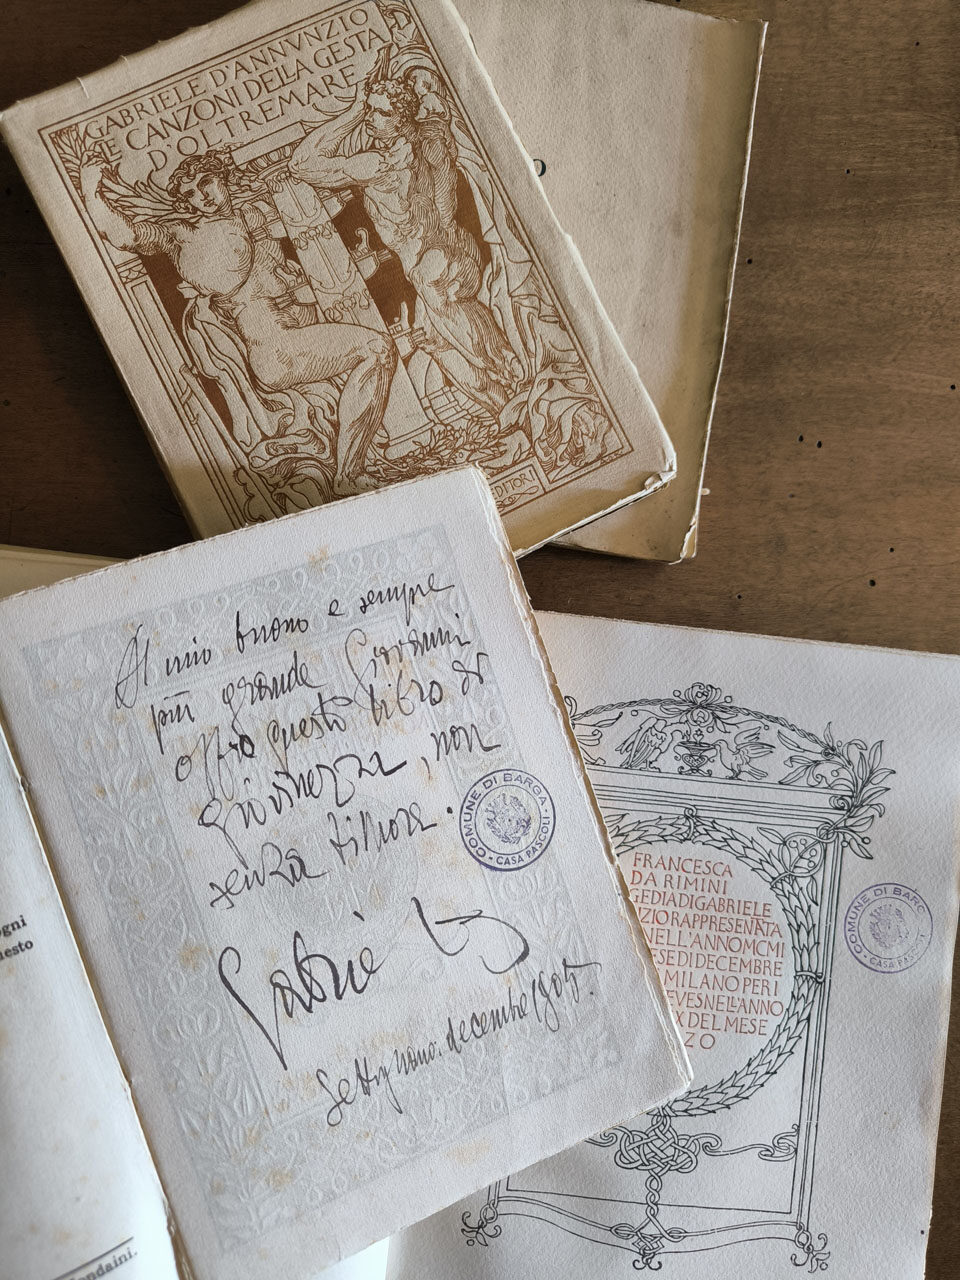 GABRIELE D'ANNVNZIO
LE CANZONI DELLA GESTA
D'OLTREMARE
EDITORI
O
Al mio buono e sempre
più grande Giovanni
offro questo libro di
giovinezza, non
senza timore.
Gabriele
Settignano. decembre 1905.
COMUNE DI BARGA
CASA PASCOLI
FRANCESCA
DA RIMINI
GEDIA DI GABRIELE
ZIO RAPPRESENTATA
NELL'ANNO MCMI
SE DI DECEMBRE
MILANO PER I
EVES NELL'ANNO
X DEL MESE
ZO
COMUNE DI BARG
CASA PASCOLI
ogni
uesto
ondaini.